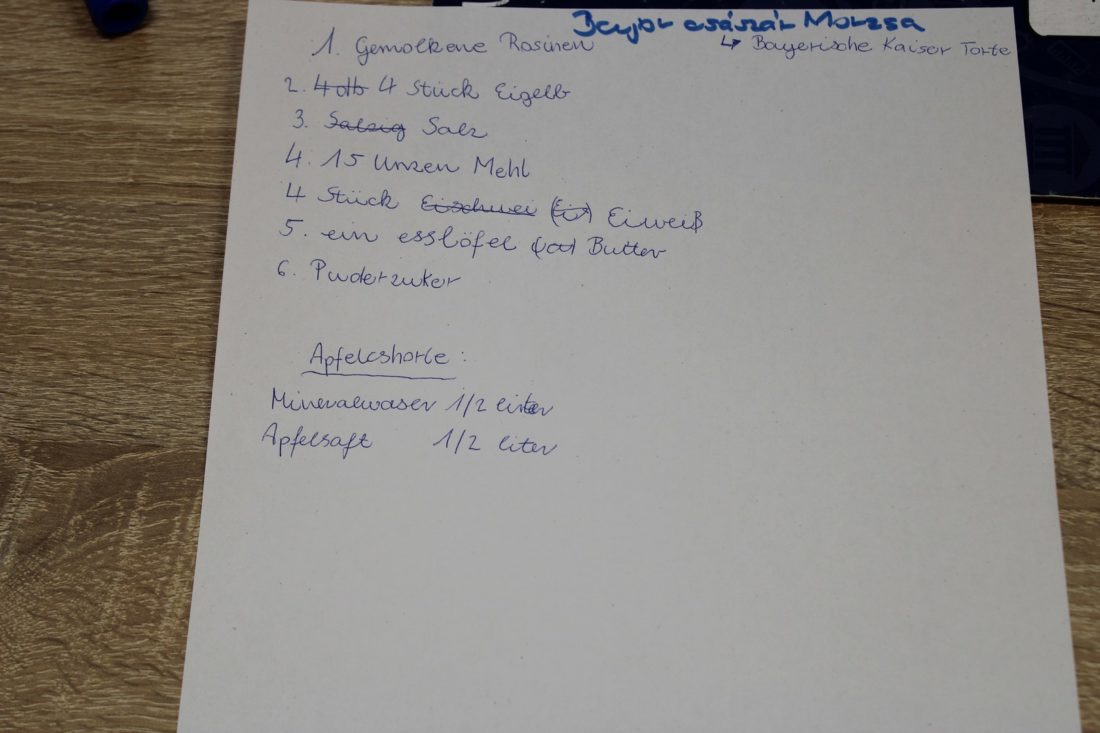 Bajor császár Morzsa
↳ Bayerische Kaiser Torte
1. Gemolkene Rosinen
2. 4 db 4 Stück Eigelb
3. Salzig Salz
4. 15 Unzen Mehl
4 Stück Eischwei (Ei) Eiweiß
5. ein esslöfel Butter
6. Puderzuker
Apfelcshorle:
Mineralwaser 1/2 liter
Apfelsaft 1/2 liter